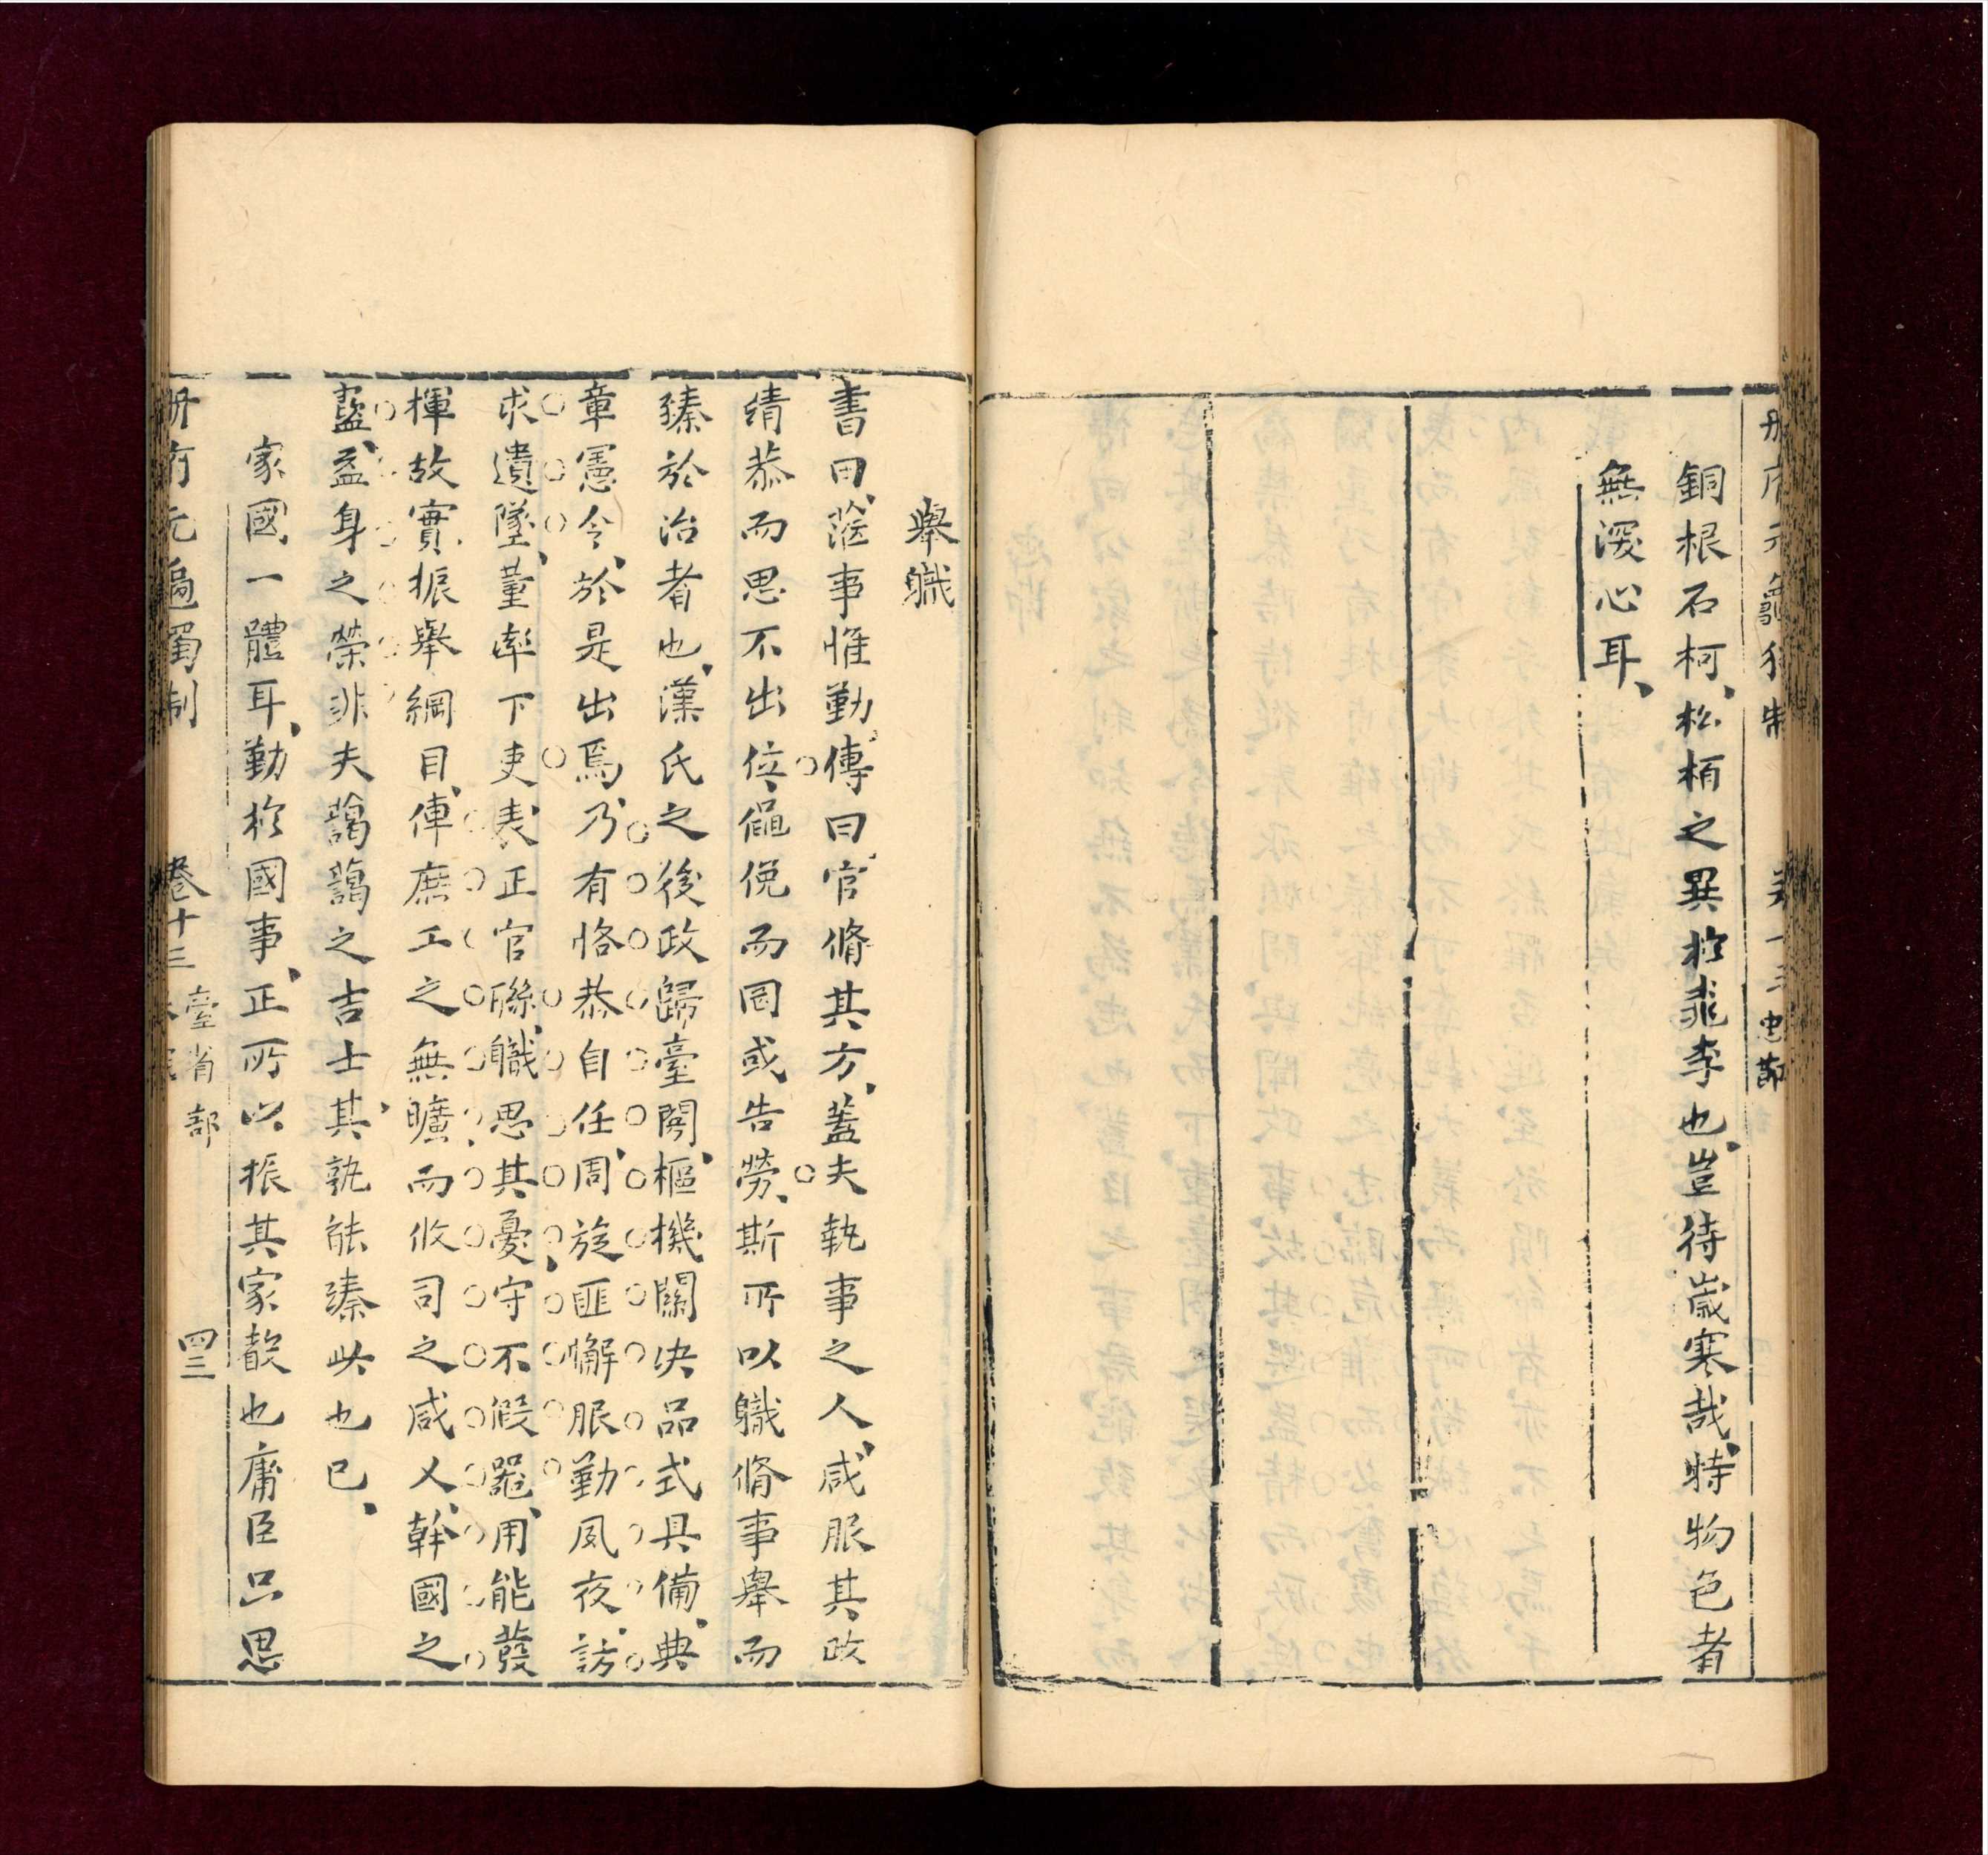 銅根石柯、松栢之異於桃李也、豈待歲寒哉、特物色者
無深心耳、
舉職
書曰、蒞事惟勤、傳曰、官脩其方、蓋夫執事之人、咸服其政
靖恭而思不出位、僶俛而罔或告勞、斯所以職脩事舉而
臻於治者也、漢氏之後政歸臺閣、樞機關决品式具備、典
章憲令、於是出焉、乃有恪恭自任、周旋匪懈、服勤夙夜、訪
求遺墜、董率下吏、表正官聯、職思其憂、守不假器、用能發
揮故實、振舉綱目、俾庶工之無曠、而攸司之咸乂、幹國之
蠱、益身之榮、非夫藹藹之吉士、其孰能臻此也已、
家國一體耳、勤於國事、正所以振其家猷也庸臣只思
册府元龜獨制
卷十三
臺省部
四三